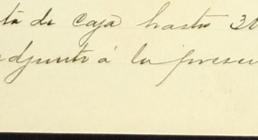 de caja hasta 30
adjunto á la presen